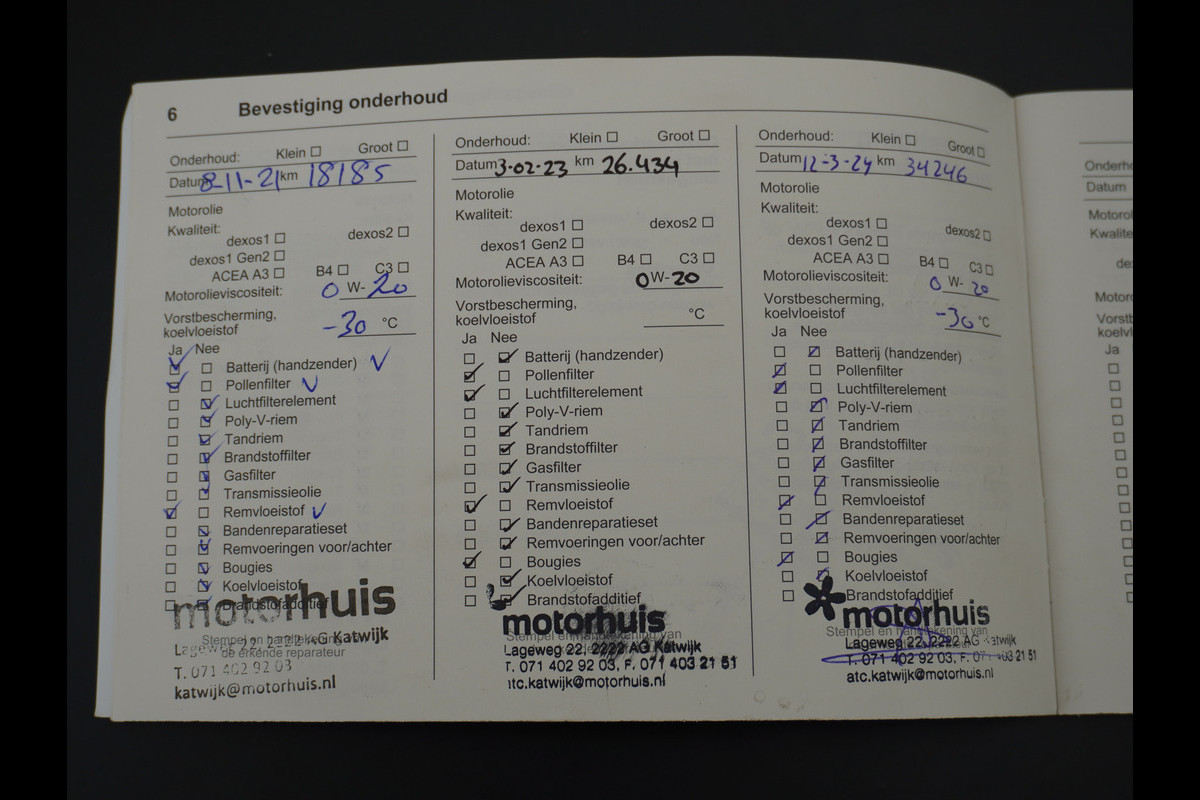 6 Bevestiging onderhoud
Onderhoud: Klein Groot
Datum 8-11-21 km 18185
Motorolie
Kwaliteit:
dexos1 dexos2
dexos1 Gen2
ACEA A3 B4 C3
Motorolieviscositeit: 0 W- 20
Vorstbescherming,
koelvloeistof -30 °C
Ja Nee
Batterij (handzender)
Pollenfilter
Luchtfilterelement
Poly-V-riem
Tandriem
Brandstoffilter
Gasfilter
Transmissieolie
Remvloeistof
Bandenreparatieset
Remvoeringen voor/achter
Bougies
Koelvloeistof
Brandstofadditief
motorhuis
Stempel en handtekening
Lageweg 22, 2222 AG Katwijk
de erkende reparateur
T. 071 402 92 03
katwijk@motorhuis.nl
Onderhoud: Klein Groot
Datum 3-02-23 km 26.434
Motorolie
Kwaliteit:
dexos1 dexos2
dexos1 Gen2
ACEA A3 B4 C3
Motorolieviscositeit: 0W-20
Vorstbescherming,
koelvloeistof °C
Ja Nee
Batterij (handzender)
Pollenfilter
Luchtfilterelement
Poly-V-riem
Tandriem
Brandstoffilter
Gasfilter
Transmissieolie
Remvloeistof
Bandenreparatieset
Remvoeringen voor/achter
Bougies
Koelvloeistof
Brandstofadditief
motorhuis
Stempel en handtekening van
Lageweg 22, 2222 AG Katwijk
T. 071 402 92 03, F. 071 403 21 51
atc.katwijk@motorhuis.nl
Onderhoud: Klein Groot
Datum 12-3-24 km 34246
Motorolie
Kwaliteit:
dexos1 dexos2
dexos1 Gen2
ACEA A3 B4 C3
Motorolieviscositeit: 0 W- 20
Vorstbescherming,
koelvloeistof -30 °C
Ja Nee
Batterij (handzender)
Pollenfilter
Luchtfilterelement
Poly-V-riem
Tandriem
Brandstoffilter
Gasfilter
Transmissieolie
Remvloeistof
Bandenreparatieset
Remvoeringen voor/achter
Bougies
Koelvloeistof
Brandstofadditief
motorhuis
Stempel en handtekening van
Lageweg 22, 2222 AG Katwijk
T. 071 402 92 03, F. 071 403 21 51
atc.katwijk@motorhuis.nl
Onderho
Datum
Motorol
Kwalite
de
Motoro
Vorstb
koelvl
Ja